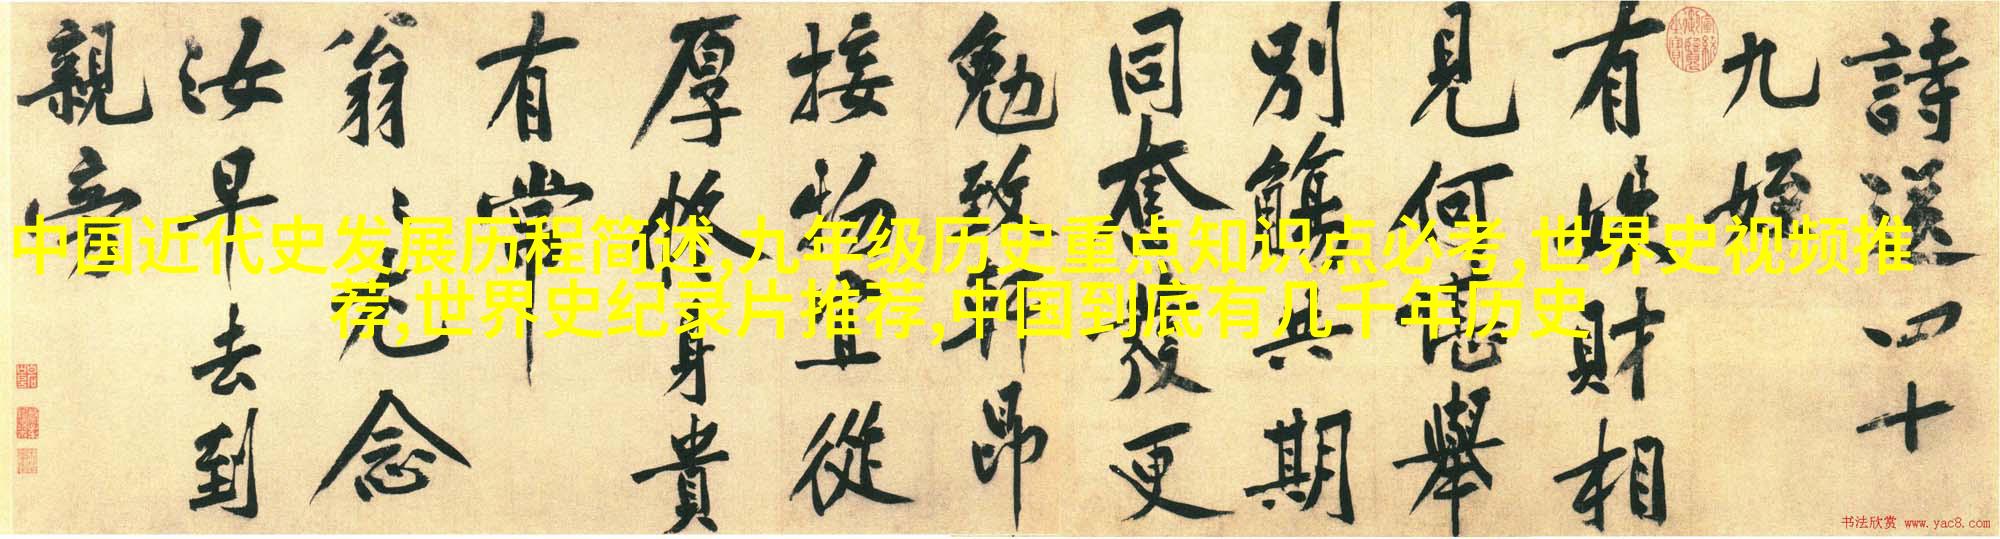 詩送四十
九姪
有姪財相
見何堪舉
別觴共期
同奮發更
勉致軒昂
接物宜從
厚收身貴
有常
翁〻老念
汝早去到
親旁
中国近代史发展历程简述,九年级历史重点知识点必考,世界史视频推
荐,世界史纪录片推荐,中国到底有几千年历史
书法欣赏 www.yac8.com